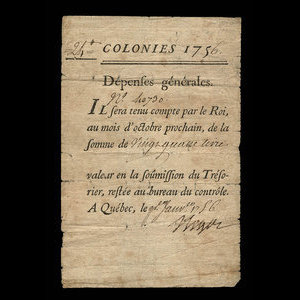 24ᵗᵗ COLONIES 1756.
Dépenses générales.
Nº.
IL sera tenu compte par le Roi,
au mois d'octobre prochain, de la
somme de Vingt quatre livres
valeur en la soumission du Tréso-
rier, restée au bureau du contrôle.
A Québec, le 1756.
Bigot